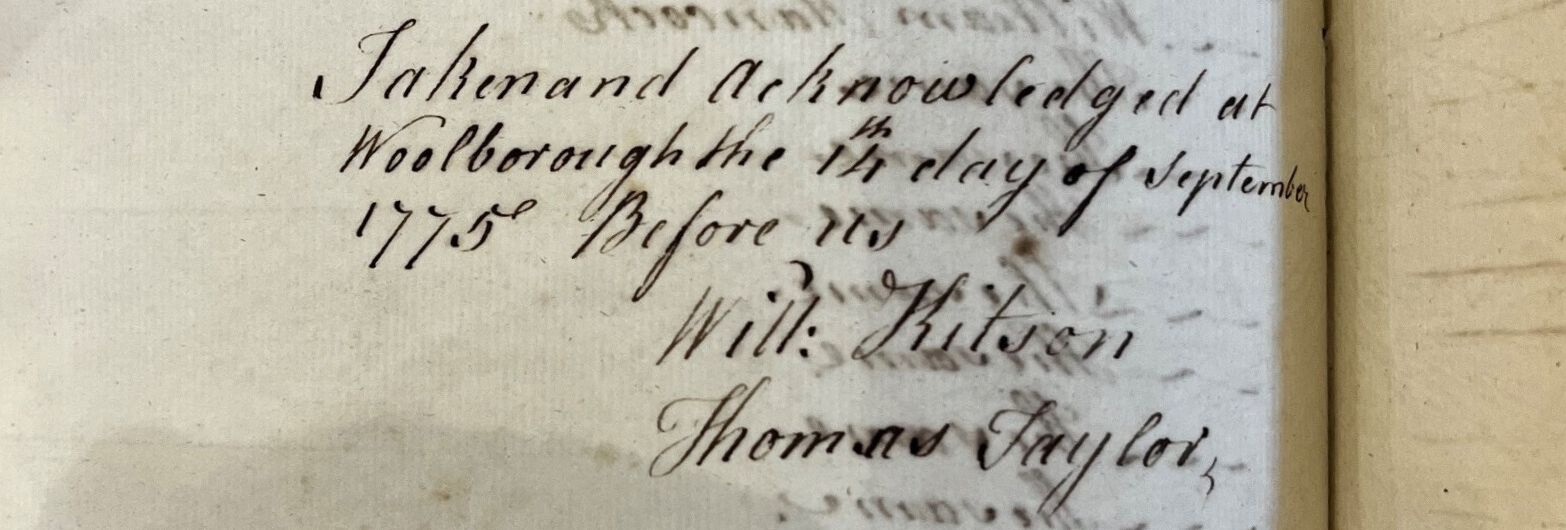 Taken and Acknowledged at
Woolborough the 14th day of September
1775 Before us
Will: Kitson
Thomas Taylor,